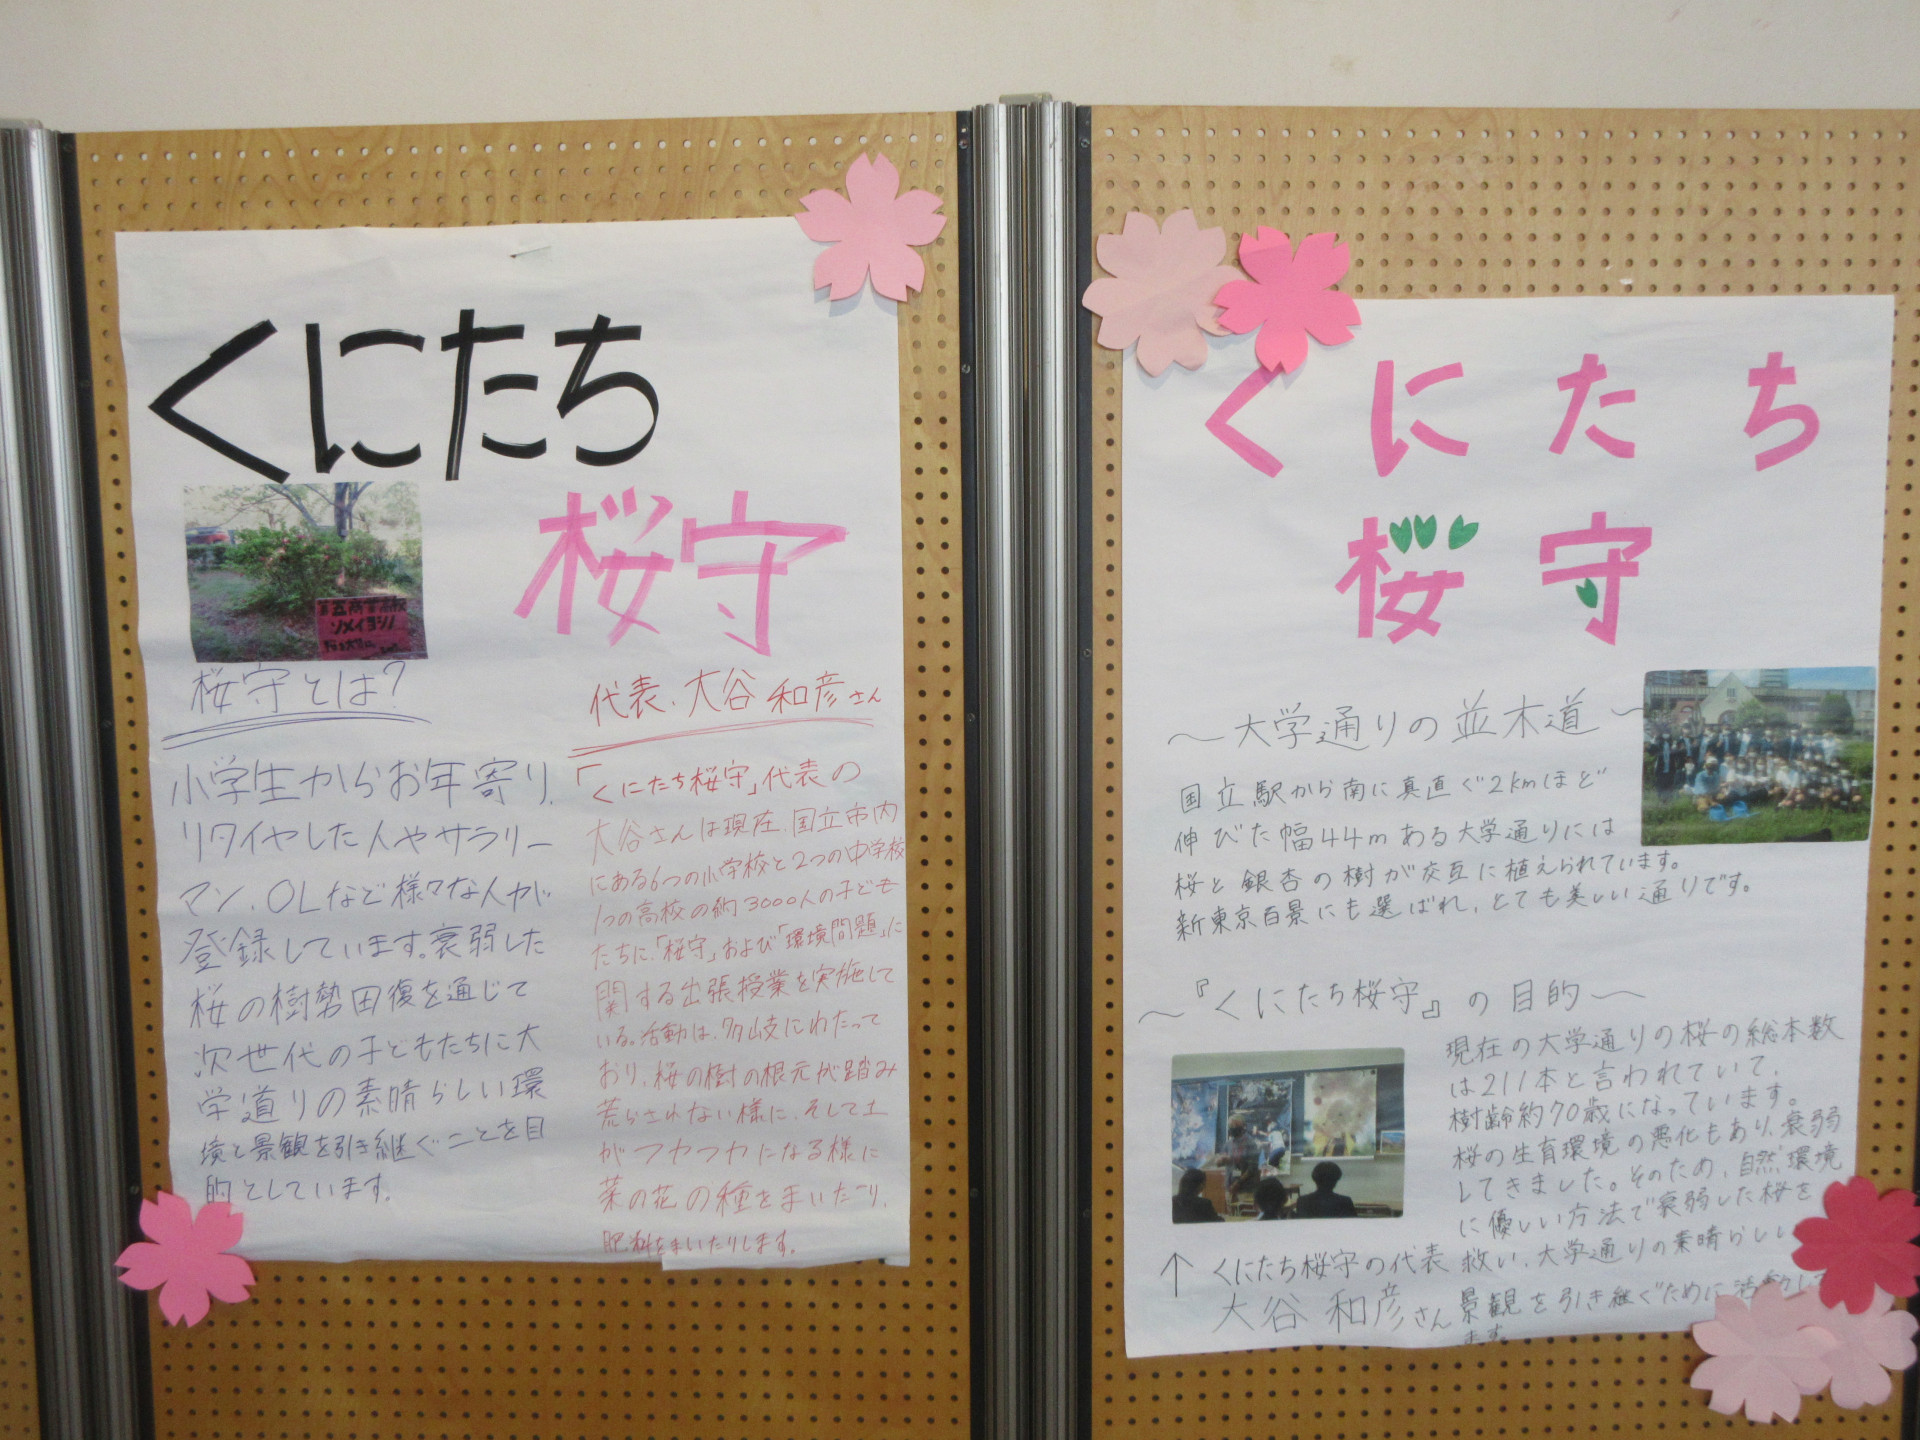 くにたち
桜守
第五商業高校
ソメイヨシノ
桜守とは?
小学生からお年寄り、
リタイヤした人やサラリー
マン、OLなど様々な人が
登録しています。衰弱した
桜の樹勢回復を通じて
次世代の子どもたちに大
学通りの素晴らしい環
境と景観を引き継ぐことを目
的としています。
代表、大谷和彦さん
「くにたち桜守」代表の
大谷さんは現在、国立市内
にある6つの小学校と2つの中学校
1つの高校の約3000人の子ども
たちに、「桜守」および「環境問題」に
関する出張授業を実施して
いる。活動は、多岐にわたって
おり、桜の樹の根元が踏み
荒らされない様に、そして土
がフカフカになる様に
菜の花の種をまいたり、
肥料をまいたりします。
くにたち
桜守
〜大学通りの並木道〜
国立駅から南に真直ぐ2kmほど
伸びた幅44mある大学通りには
桜と銀杏の樹が交互に植えられています。
新東京百景にも選ばれ、とても美しい通りです。
〜『くにたち桜守』の目的〜
現在の大学通りの桜の総本数
は211本と言われていて、
樹齢約70歳になっています。
桜の生育環境の悪化もあり、衰弱
してきました。そのため、自然環境
に優しい方法で衰弱した桜を
救い、大学通りの素晴らしい
景観を引き継ぐために活動して
ます。
↑くにたち桜守の代表
大谷和彦さん